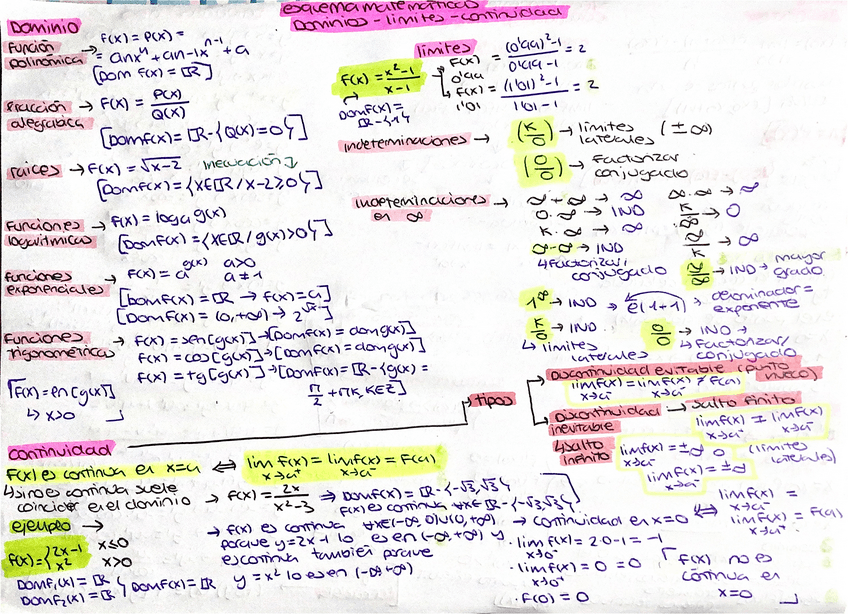 esquema matemáticas
Dominios - limites - continuidad
Dominio
Función polinómica → F(x) = P(x) =
= anxⁿ + an-1xⁿ⁻¹ + a
[Dom f(x) = ℝ]
Fracción alegrabica → F(x) = P(x)/Q(x)
[Domf(x) = ℝ - {Q(x) = 0}]
raices → F(x) = √x-2 inecuación
[Domf(x) = {x∈ℝ / x-2≥0}]
Funciones logaritmicas → F(x) = loga g(x)
[Domf(x) = {x∈ℝ / g(x)>0}]
Funciones exponenciales → F(x) = a^g(x) a>0 a≠1
[Domf(x) = ℝ → F(x) = a]
[Domf(x) = (0,+∞) → 2^√x]
Funciones trigonométricas → F(x) = sen[g(x)] → [Domf(x) = dom g(x)]
F(x) = cos[g(x)] → [Domf(x) = dom g(x)]
F(x) = tg[g(x)] → [Domf(x) = ℝ - {g(x) =
π/2 + πk, k∈Z}]
F(x) = en[g(x)]
↳ x>0
limites
F(x) = x²-1/x-1
Domf(x) =
ℝ - {1}
F(x) 0'99 = (0'99)²-1/0'99-1 = 2
F(x) 1'01 = (1'01)²-1/1'01-1 = 2
indeterminaciones → (K/0) → limites laterales (±∞)
(0/0) → Factorizar conjugado
Indeterminaciones en ∞ → ∞+∞ → ∞ ∞·∞ → ∞
0·∞ → IND K/∞ → 0
K·∞ → ∞ ∞/K → ∞
∞-∞ → IND
↳ Factorizar/ conjugado
∞/∞ → IND → mayor grado
1^∞ → IND → e(1+1) → denominador = exponente
K/0 → IND
↳ limites laterales
0/0 → IND →
↳ Factorizar/ conjugado
tipos
Discontinuidad evitable (punto hueco)
lim f(x) = lim f(x) ≠ F(a)
x→a⁻ x→a⁻
Discontinuidad inevitable → salto finito
lim f(x) ≠ lim f(x)
x→a⁻ x→a⁻
↳ salto infinito
lim f(x) = ±∞ o (limites laterales)
x→a⁻
lim f(x) = ±∞
x→a⁻
continuidad
F(x) es continua en x=a ⇔ lim f(x) = lim f(x) = F(a)
x→a⁺ x→a⁻
↳ si no es continua suele
coincidir en el dominio → F(x) = 2x/x²-3 ⇒ Domf(x) = ℝ - {-√3,√3}
F(x) es continua ∀x∈ℝ - {-√3,√3}
ejemplo →
f(x) = { 2x-1 x≤0
x² x>0
Domf₁(x) = ℝ
Domf₂(x) = ℝ } Domf(x) = ℝ
→ f(x) es continua ∀x∈(-∞,0)∪(0,+∞)
porque y=2x-1 lo es en (-∞+∞) y
es continua también porque
y = x² lo es en (-∞+∞)
→ continuidad en x=0 ⇔ lim f(x) =
x→a⁻
lim f(x) = F(a)
x→a⁻
· lim f(x) = 2·0-1 = -1
x→0⁻
· lim f(x) = 0 = 0
x→0⁺
· F(0) = 0
F(x) no es
continua en
x=0